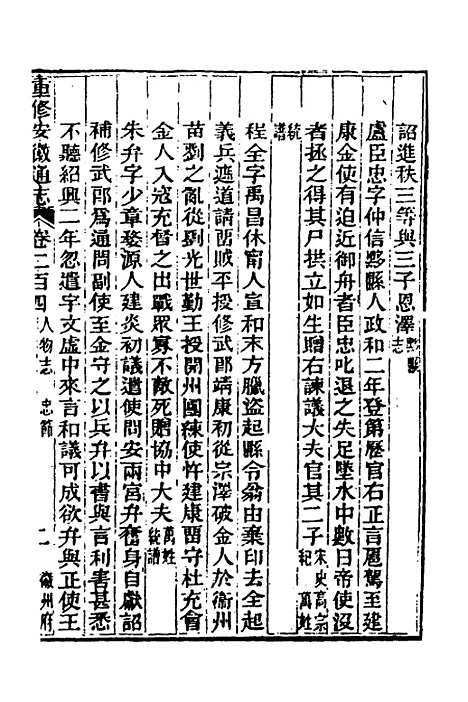 詔進秩三等與三子恩澤黟縣志
盧臣忠字仲信黟縣人政和二年登第歷官右正言扈駕至建
康金使有迫近御舟者臣忠叱退之失足墜水中數日帝使沒
者拯之得其尸拱立如生贈右諫議大夫官其二子宋史高宗紀 萬姓
統譜
程全字禹昌休甯人宣和末方臘盜起縣令翁由棄印去全起
義兵遮道請留賊平授修武郎靖康初從宗澤破金人於衞州
苗劉之亂從劉光世勤王授開州團練使忤建康畱守杜充會
金人入寇充督之出戰眾寡不敵死贈協中大夫萬姓統譜
朱弁字少章婺源人建炎初議遣使問安兩宮弁奮身自獻詔
補修武郎為通問副使至金守之以兵弁以書與言利害甚悉
不聽紹興二年忽遣宇文虛中來言和議可成欲弁與正使王
重修安徽通志 卷二百四 人物志 忠節 二 徽州府